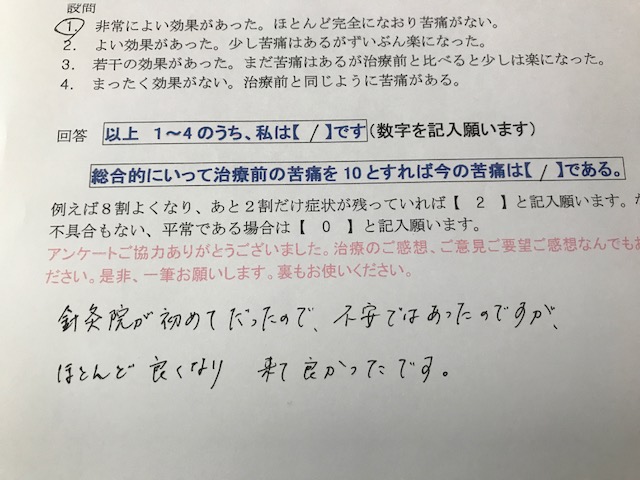 設問
1. 非常によい効果があった。ほとんど完全になおり苦痛がない。
2. よい効果があった。少し苦痛はあるがずいぶん楽になった。
3. 若干の効果があった。まだ苦痛はあるが治療前と比べると少しは楽になった。
4. まったく効果がない。治療前と同じように苦痛がある。
回答 以上 1～4のうち、私は【 1 】です(数字を記入願います)
総合的にいって治療前の苦痛を10とすれば今の苦痛は【 1 】である。
例えば8割よくなり、あと2割だけ症状が残っていれば【 2 】と記入願います。
不具合もない、平常である場合は【 0 】と記入願います。
アンケートご協力ありがとうございました。治療のご感想、ご意見ご要望ご感想なんでも
ださい。是非、一筆お願いします。裏もお使いください。
針灸院が初めてだったので、不安ではあったのですが、
ほとんど良くなり 来て良かったです。